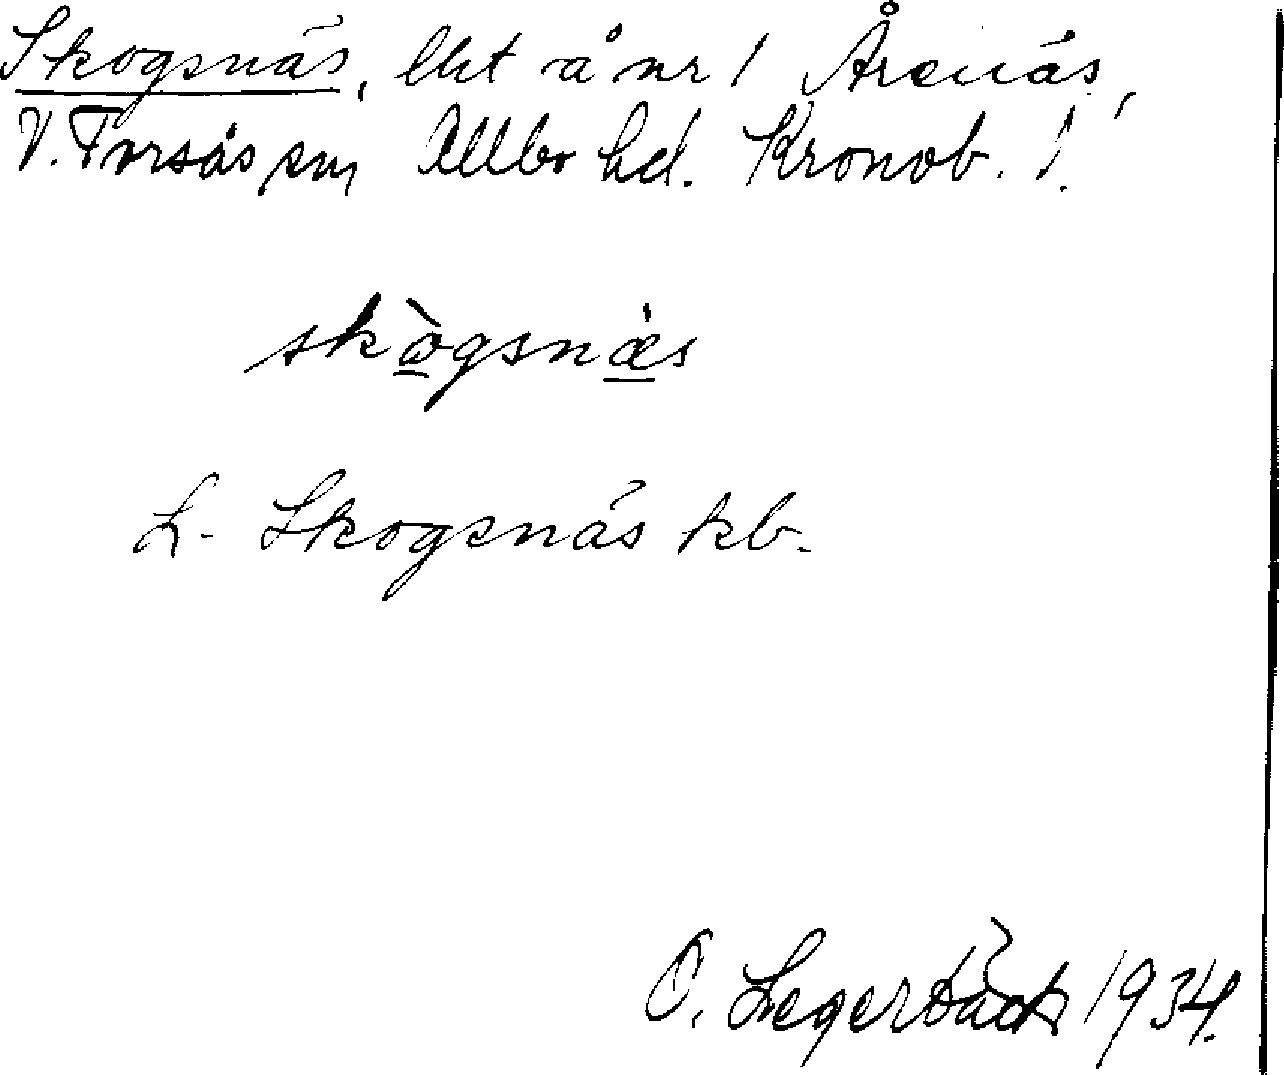 Skogsnäs, lht å nr 1 Årenäs,
V. Torsås sn, Allbo hd. Kronob. l.
skògsnæ̀s
L. Skogsnäs kb.
O. Legerbäck 1934.